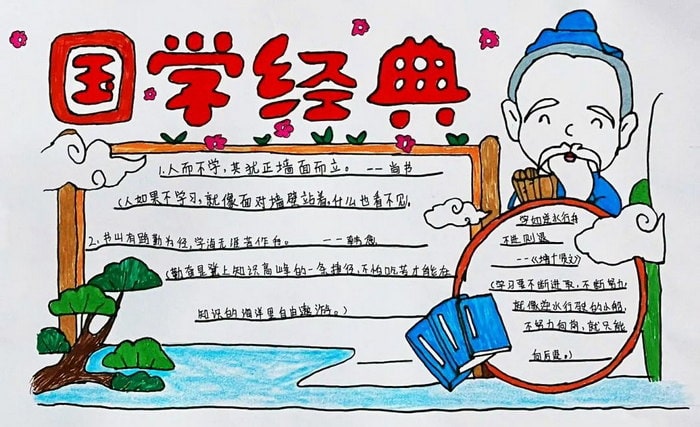 国学经典
1.人而不学,其犹正墙面而立。——尚书
(人如果不学习,就像面对墙壁站着,什么也看不见.
2、书山有路勤为径,学海无涯苦作舟。——韩愈
(勤奋是登上知识高峰的一条捷径,不怕吃苦才能在
知识的海洋里自由遨游。)
学如逆水行舟
不进则退
——《增广贤文》
(学习要不断进取,不断努力
就像逆水行驶的小船,
不努力向前,就只能
向后退。)